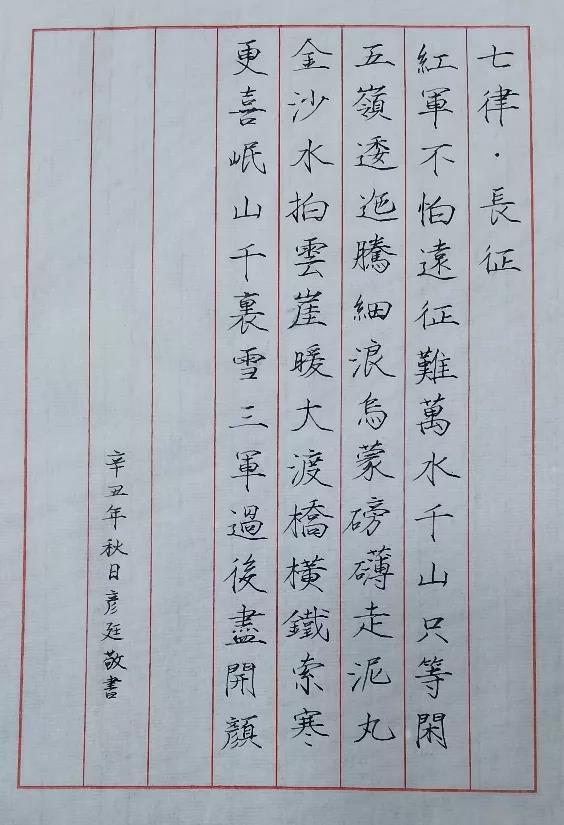 七律·長征
紅軍不怕遠征難萬水千山只等閑
五嶺逶迤騰細浪烏蒙磅礴走泥丸
金沙水拍雲崖暖大渡橋橫鐵索寒
更喜岷山千裏雪三軍過後盡開顏
辛丑年秋日彦廷敬書